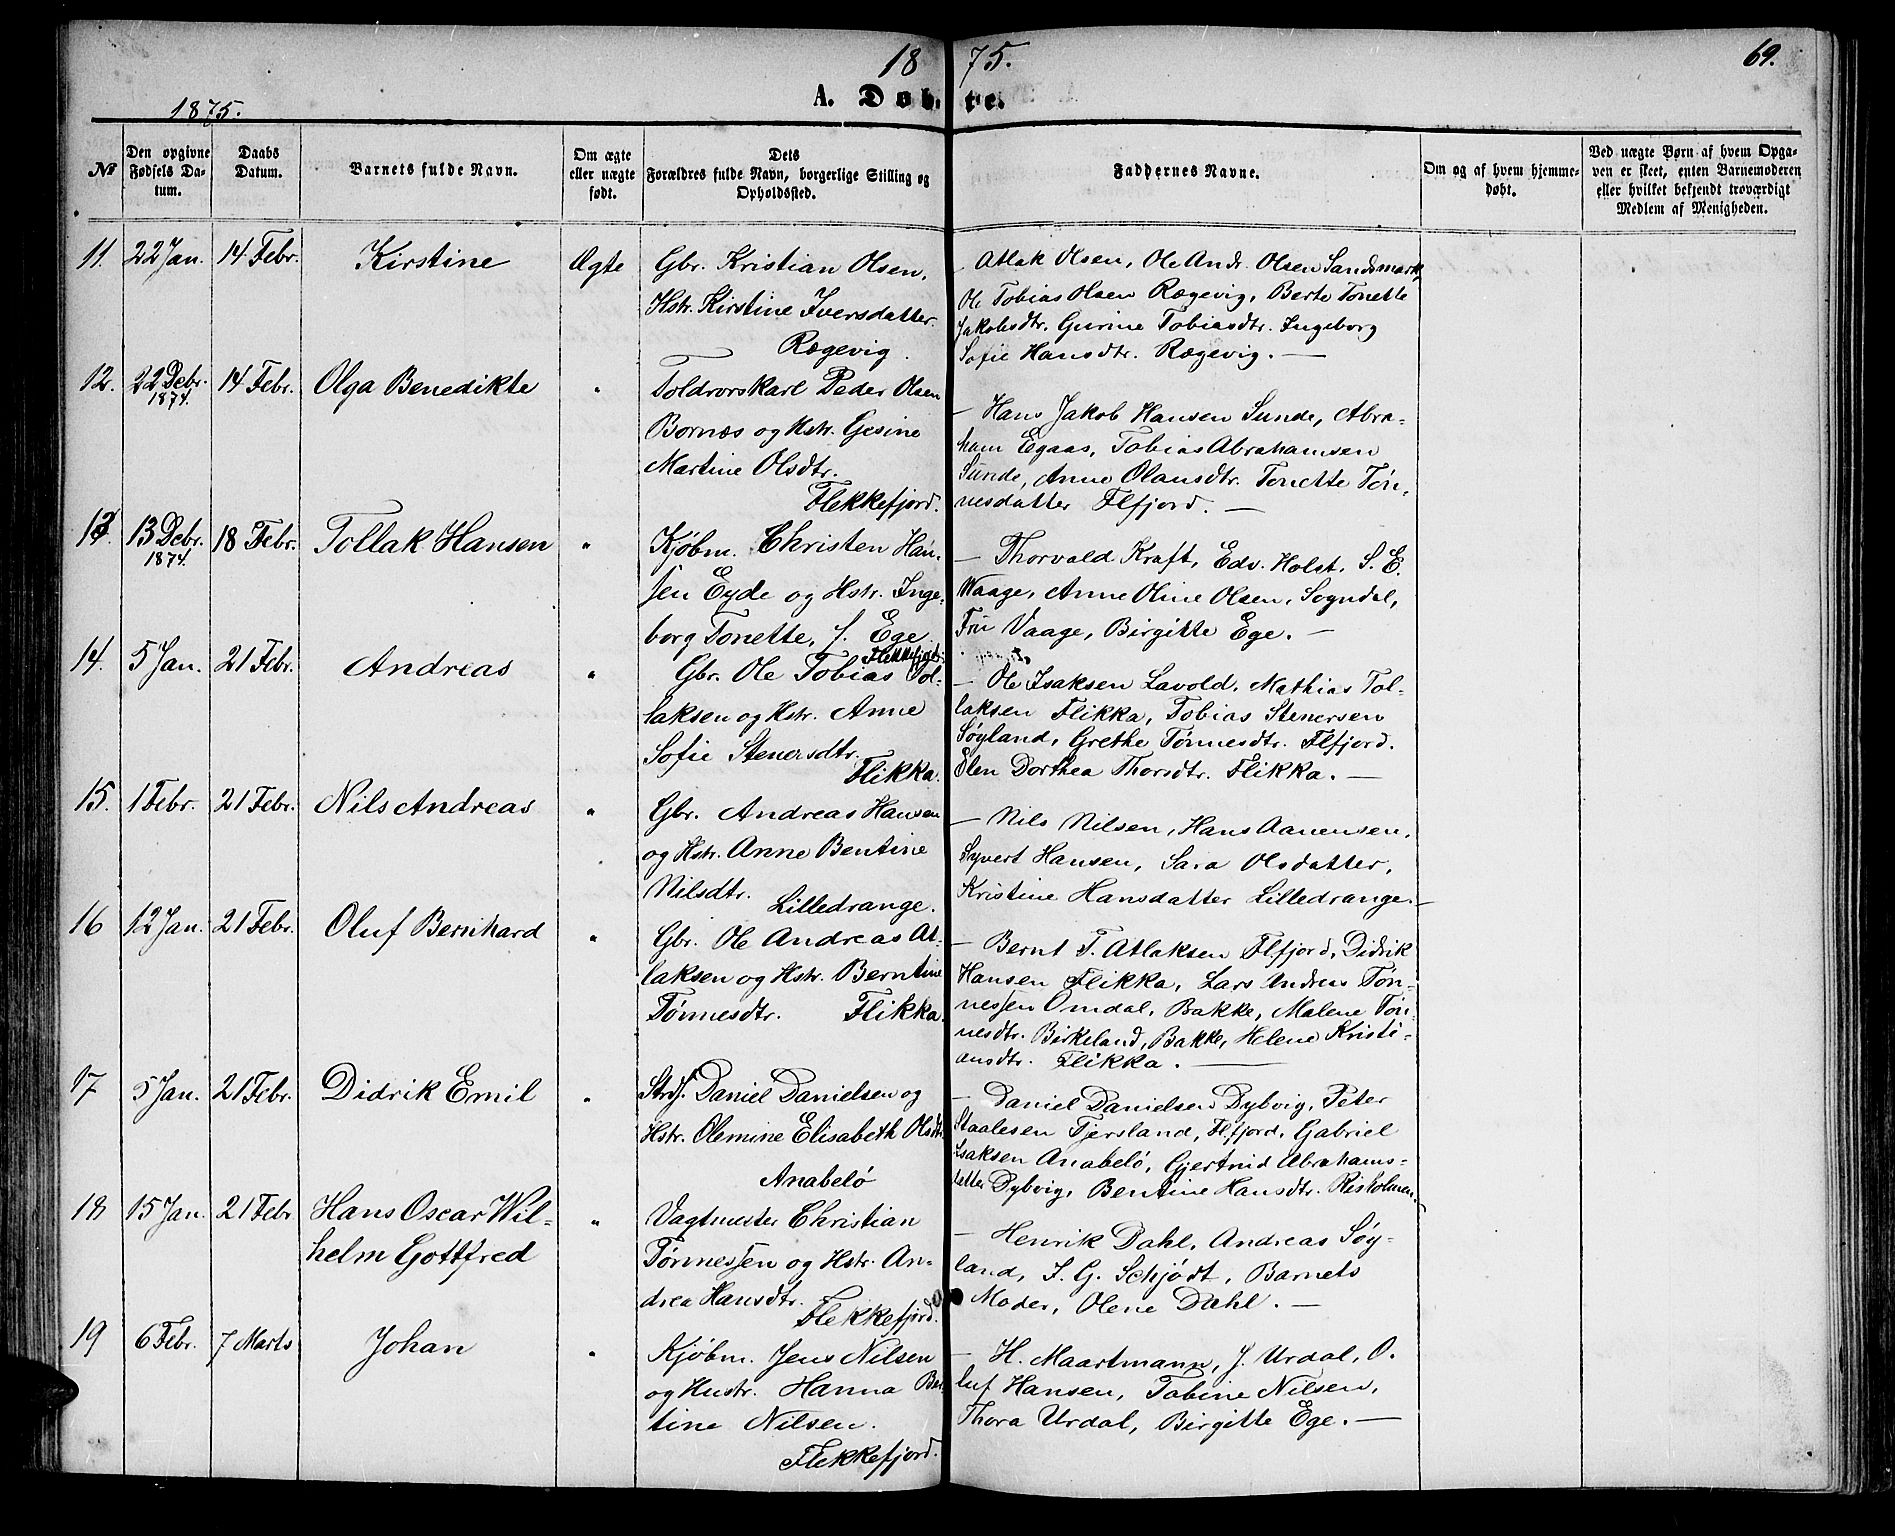 1875.
69.
A. Døbte.
1875.
№
Den opgivne Fødsels Datum.
Daabs Datum.
Barnets fulde Navn.
Om ægte eller uægte født.
Dets Forældres fulde Navn, borgerlige Stilling og Opholdssted.
Faddernes Navne.
Om og af hvem hjemmedøbt.
Ved uægte Børn af hvem Opgaven er skeet, enten Barnemoderen eller hvilket bekjendt troværdigt Medlem af Menigheden.
11. 22 Jan. 14 Febr. Kirstine Ægte
Gbr. Kristian Olsen,
Hstr. Kirstine Iversdatter.
Rægevig.
Atlak Olsen, Ole Andr. Olsen Sandsmark,
Ole Tobias Olsen Rægevig, Berte Tonette
Jakobsdtr. Gurine Tobiasdtr. Ingeborg
Sofie Hansdtr. Rægevig. —
12. 22 Debr. 1874. 14 Febr. Olga Benedikte "
Toldrorskarl Peder Olsen
Bornæs og Hstr. Gesine
Martine Olsdtr.
Flekkefjord.
— Hans Jakob Hansen Sunde, Abra-
ham Egaas, Tobias Abrahamsen
Sunde, Anne Olausdtr. Tonette Tøn-
nesdatter Flfjord. —
13. 13 Debr. 1874. 18 Febr. Tollak Hansen "
Kjøbm. Christen Han-
sen Eyde og Hstr. Inge-
borg Tonette, f. Ege
Flekkefjord.
— Thorvald Kraft, Edv. Holst. S. E.
Waage, Anne Oline Olsen, Sogndal,
Fru Vaage, Birgitte Ege. —
14. 5 Jan. 21 Febr. Andreas "
Gbr. Ole Tobias Tol-
laksen og Hstr. Anne
Sofie Stenersdtr.
Flikka.
— Ole Isaksen Lavold, Mathias Tol-
laksen Flikka, Tobias Stenersen
Søyland, Grethe Tønnesdtr. Flfjord.
Elen Dorthea Thorsdtr. Flikka. —
15. 1 Febr. 21 Febr. Nils Andreas "
Gbr. Andreas Hansen
og Hstr. Anne Bentine
Nilsdtr.
Lilledrange.
— Nils Nilsen, Hans Aanensen,
Syvert Hansen, Sara Olsdatter,
Kristine Hansdatter Lilledrange. —
16 12 Jan. 21 Febr. Oluf Bernhard "
Gbr. Ole Andreas At-
laksen og Hstr. Berntine
Tønnesdtr. Flikka.
— Bernt T. Atlaksen Flfjord, Didrik
Hansen Flikka, Lars Andreas Tøn-
nessen Omdal, Bakke, Malene Tøn-
nesdtr. Birkeland, Bakke, Helene Kristi-
ansdtr. Flikka. —
17 5 Jan. 21 Febr. Didrik Emil "
Strds. Daniel Danielsen og
Hstr. Olemine Elisabeth Olsdtr.
Anabelø
— Daniel Danielsen Dybvig, Peter
Staalesen Tjersland, Flfjord, Gabriel
Isaksen Anabelø, Gjertrud Abrahams-
datter Dybvig, Bentine Hansdtr. Risholmen.
18 15 Jan. 21 Febr Hans Oscar Wil-
helm Gottfred "
Vagtmester Christian
Tønnessen og Hstr. An-
drea Hansdtr.
Flekkefjord.
— Henrik Dahl, Andreas Søy-
land, S. G. Schjødt, Barnets
Moder, Olene Dahl. —
19 6 Febr. 7 Marts Johan "
Kjøbm. Jens Nilsen
og Hustr. Hanna Ber-
tine Nilsen.
Flekkefjord.
— H. Maartmann, J. Urdal, O-
luf Hansen, Tobine Nilsen,
Thora Urdal, Birgitte Ege. —